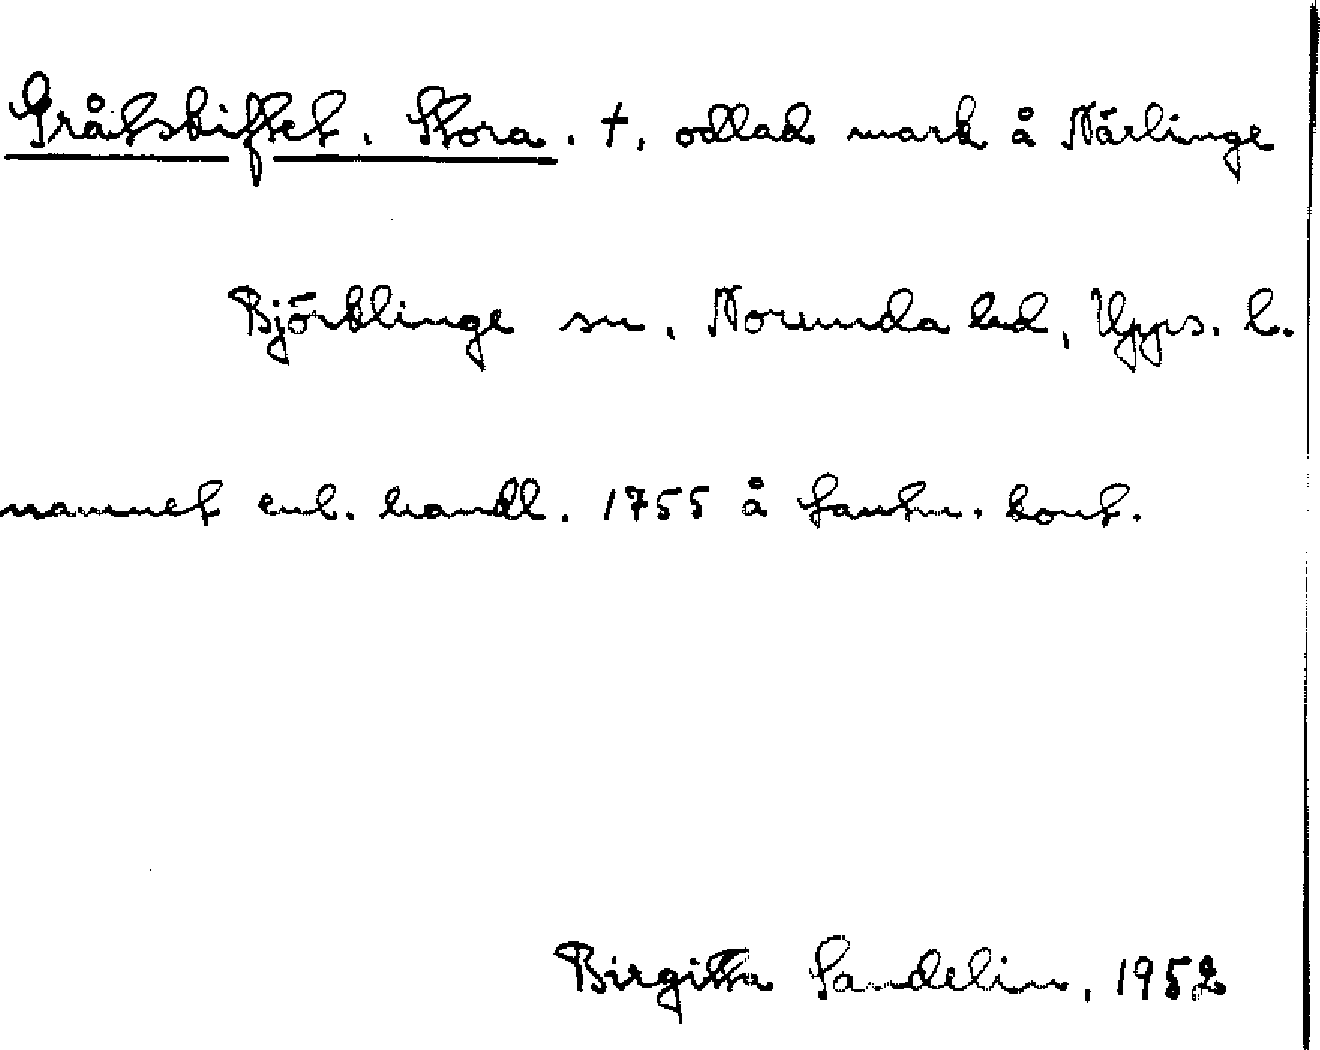 Gråtskiftet, Stora. †, odlad mark å Närlinge
Björklinge sn, Norunda hd, Upps. l.
namnet enl. handl. 1755 å Lantm. kont.
Birgitta Sandelin, 1952